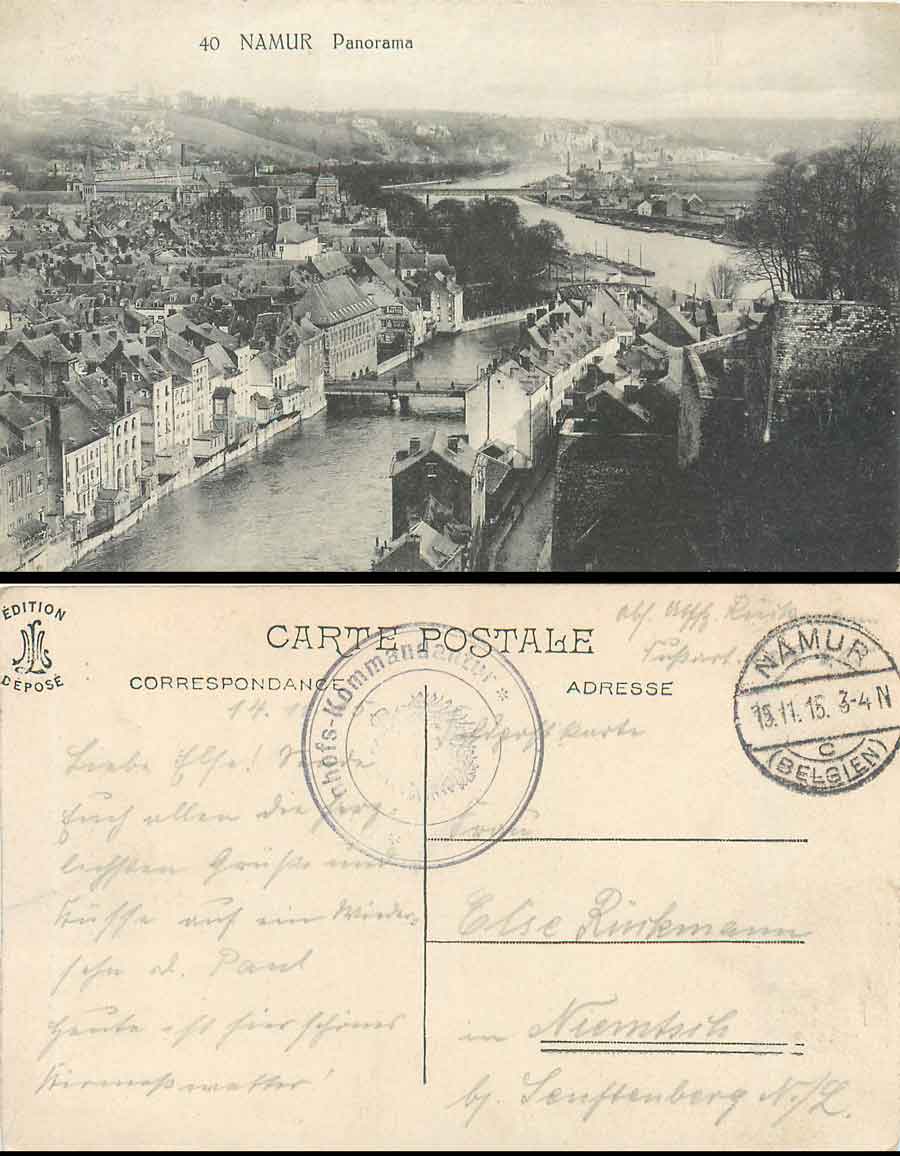 40 NAMUR Panorama
ÉDITION
DÉPOSÉ
CARTE POSTALE
CORRESPONDANCE
ADRESSE
nhofs-Kommandantur *
NAMUR
15.11.15. 3-4 N
c
(BELGIEN)
abs.
14.
Liebe Else! Sende
Euch allen die herz-
lichsten Grüße und
Küsse auf ein Wieder-
sehn d. Paul
Heute ist hier schönes
Kirmeßwetter!
Feldpostkarte
Frau
Else Rückmann
in Niemtsch
b/ Senftenberg N./L.